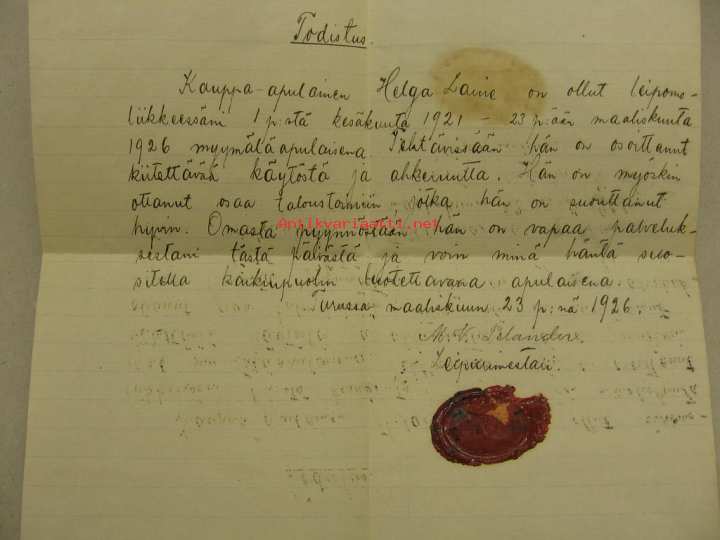 Todistus.
Kauppa-apulainen Helga Laine on ollut leipomo-
liikkeessäni 1 p:stä kesäkuuta 1921 – 23 p:ään maaliskuuta
1926 myymäläapulaisena. Tehtävissään hän on osoittanut
kiitettävää käytöstä ja ahkeruutta. Hän on myöskin
ottanut osaa taloustoimiin jotka hän on suorittanut
hyvin. Omasta pyynnöstään hän on vapaa palveluk-
sestani tästä päivästä ja voin minä häntä suo-
sitella kaikinpuolin luotettavana apulaisena.
Turussa, maaliskuun 23 p:nä 1926.
M. V. Selander.
Leipurimestari.
Antikvariaatti.net